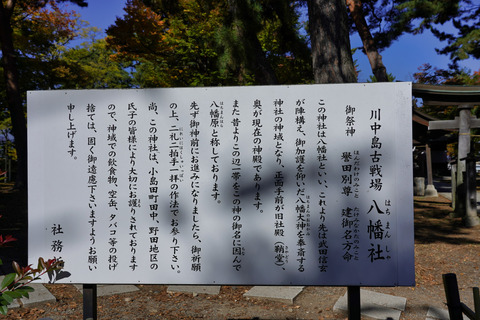 川中島古戦場 八幡社
はちまんしゃ
御祭神 誉田別尊 建御名方命
ほんだわけのみこと たけみなかたのみこと
この神社は八幡社といい、これより先は武田信玄
が陣構え、御加護を仰いだ八幡大神を奉斎する
神社の神域となり、正面手前が旧社殿(鞘堂)、
さやどう
奥が現在の神殿であります。
また昔よりこの辺一帯をこの神の御名に因んで
八幡原と称しております。
はちまんばら
先ず御神前にお進みになりましたら、御祈願
の上、二礼二拍手一拝の作法でお参り下さい。
尚、この神社は、小島田町田中、野田地区の
氏子の皆様により大切にお護りされております
ので、神域での飲食物、空缶、タバコ等の投げ
捨ては、固く御遠慮下さいますようお願い
申し上げます。
社務